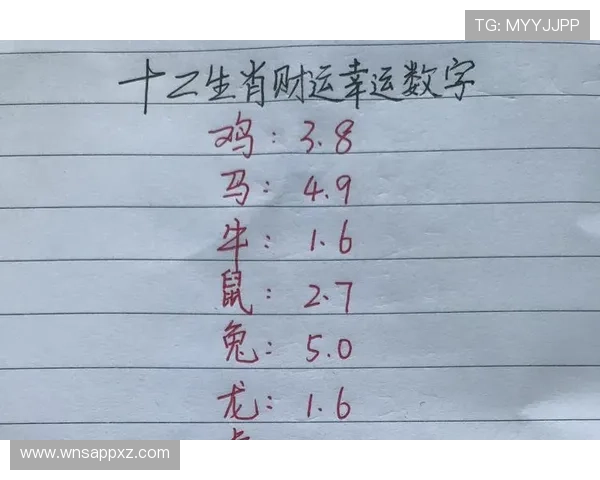 TG: MYYJJPP
十二生肖财运幸运数字
鸡: 3.8
马: 4.9
牛: 1.6
鼠: 2.7
兔: 5.0
龙: 1.6
www.wnsappxz.com